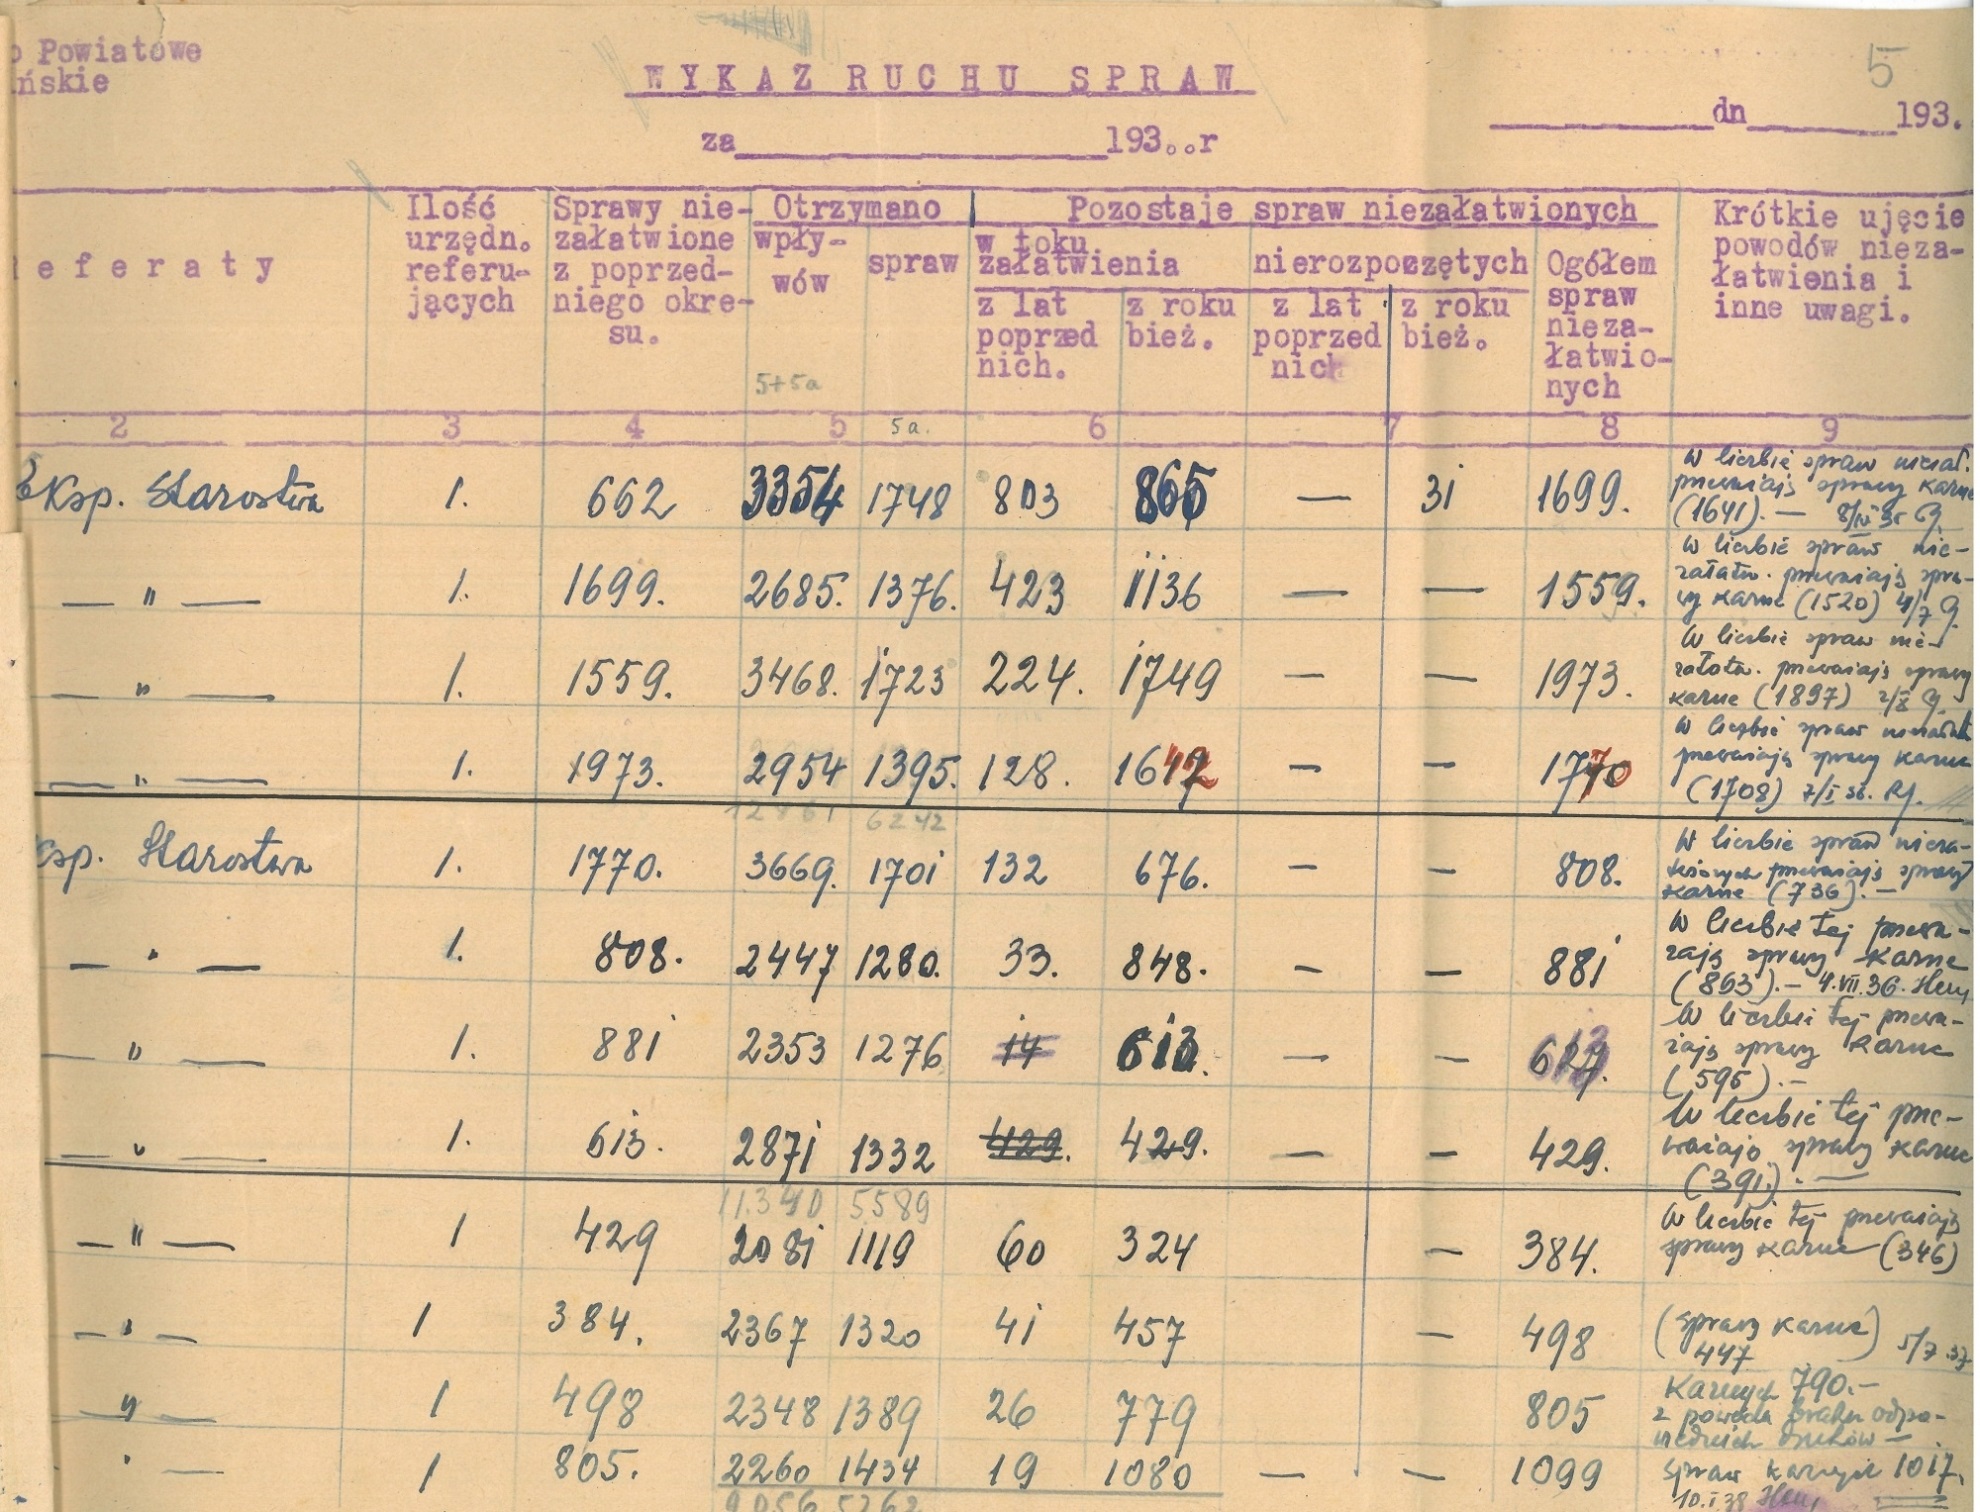 Powiatowe
ńskie
5
WYKAZ RUCHU SPRAW
dn 193.
za 193...r
Referaty
Ilość urzędn. referujących
Sprawy niezałatwione z poprzedniego okresu.
Otrzymano
wpływów
spraw
Pozostaje spraw niezałatwionych
w toku załatwienia
z lat poprzednich.
z roku bież.
nierozpoczętych
z lat poprzednich
z roku bież.
Ogółem spraw niezałatwionych
Krótkie ujęcie powodów niezałatwienia i inne uwagi.
5+5a
2 3 4 5 5a. 6 7 8 9
Eksp. Starostwa 1. 662 3354 1748 803 865 — 31 1699. W liczbie spraw niezał.
przeważają sprawy karne
(1641). — 8/IV 35
— " — 1. 1699. 2685. 1376. 423 1136 — — 1559. W liczbie spraw nie-
załatw. przeważają spra-
wy karne (1520) 4/7
— " — 1. 1559. 3468. 1723 224. 1749 — — 1973. W liczbie spraw nie-
załatw. przeważają sprawy
karne (1897) 2/X
— " — 1. 1973. 2954 1395. 128. 1642 — — 1770 W liczbie spraw niezałatw.
przeważają sprawy karne
(1708) 7/I 36.
12861 6242
Eksp. Starostwa 1. 1770. 3669. 1701 132 676. — — 808. W liczbie spraw nieza-
przeważają sprawy
karne (736). —
— " — 1. 808. 2447 1280. 33. 848. — — 881 W liczbie tej przewa-
żają sprawy karne
(863). — 4.VII.36.
— " — 1. 881 2353 1276 14 613. — — W liczbie tej przewa-
żają sprawy karne
(595). —
— " — 1. 613. 2871 1332 429. 429. — — 429. W liczbie tej prze-
ważają sprawy karne
(391.). —
11.340 5589
— " — 1 429 2081 1119 60 324 — 384. W liczbie tej przeważają
sprawy karne (346)
— " — 1 384. 2367 1320 41 457 — 498 (Sprawy karne)
447 5/7 37
— " — 1 498 2348 1389 26 779 805 Karnych 790. —
z powodu braku odpo-
wiednich druków —
" — 1 805. 2260 1434 19 1080 — — 1099 Spraw karnych 1017.
10.I.38
9056 5262